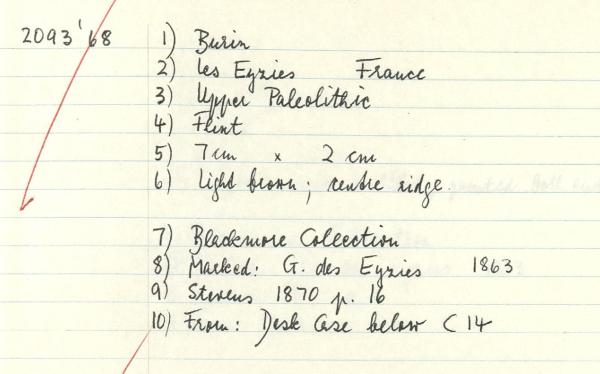 2093'68 1) Burin
2) Les Eyzies France
3) Upper Paleolithic
4) Flint
5) 7cm x 2 cm
6) Light brown; centre ridge.
7) Blackmore Collection
8) Marked: G. des Eyzies 1863
9) Stevens 1870 p. 16
10) From: Desk Case below C 14